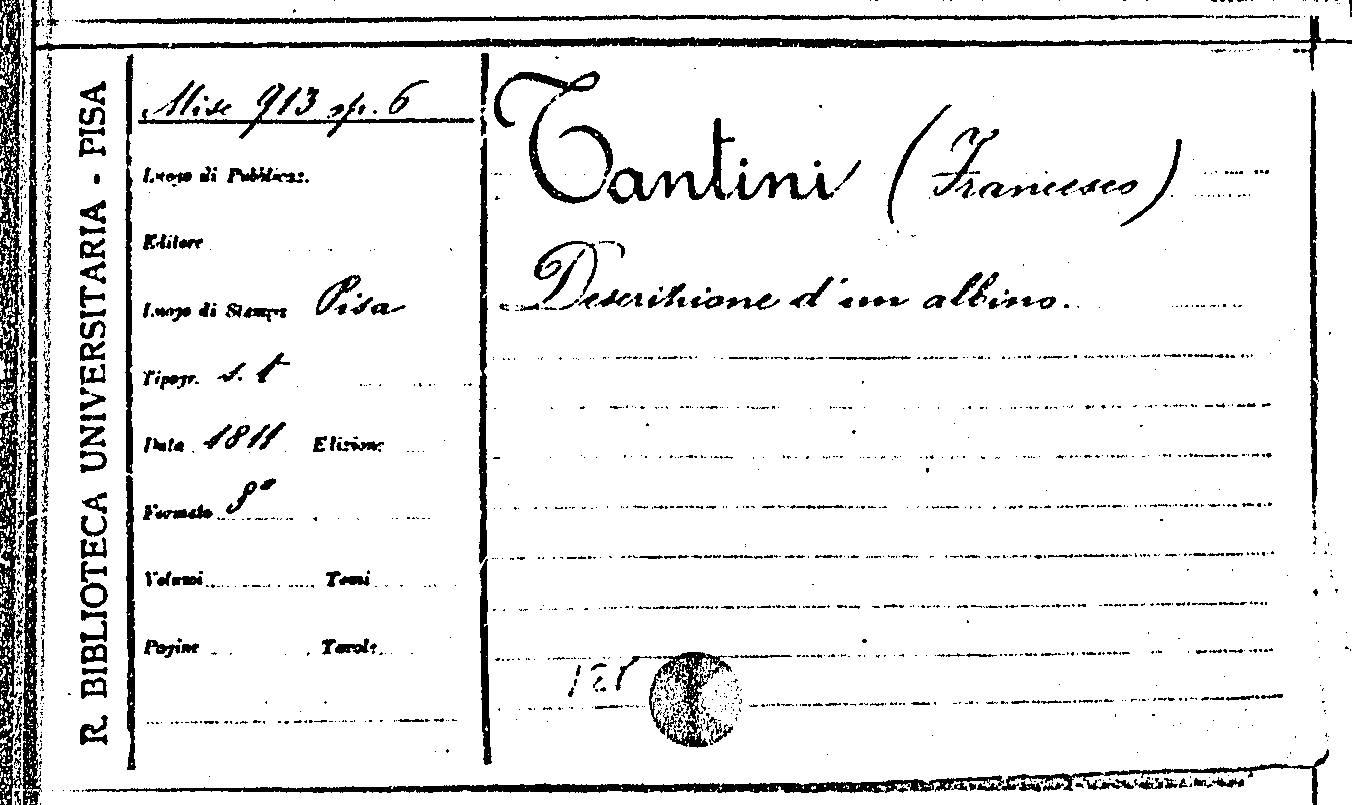 R. BIBLIOTECA UNIVERSITARIA - PISA
Misc 913 op. 6
Luogo di Pubblicaz.
Editore
Luogo di Stampa Pisa
Tipogr. s. t
Data 1811 Edizione
Formato 8°
Volumi Tomi
Pagine Tavole
Tantini (Francesco)
Descrizione d'un albino.